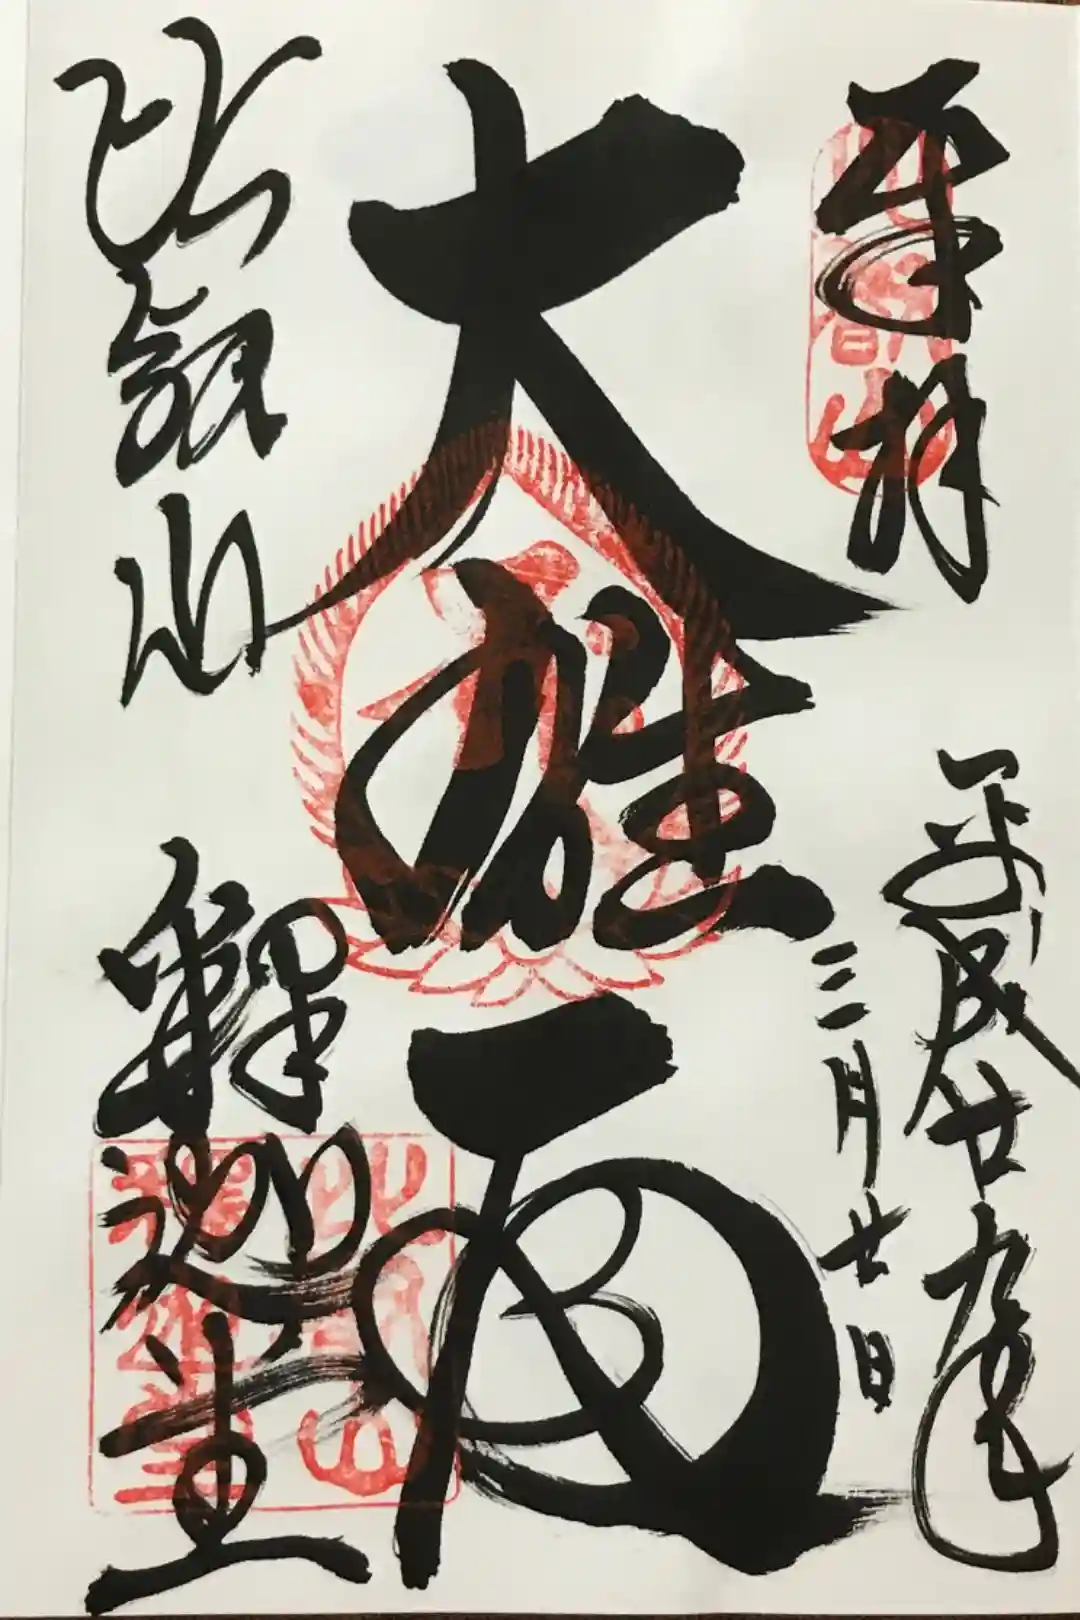 奉拝
平成廿九年
三月廿日
大雄
比叡山 釋迦堂
比叡山